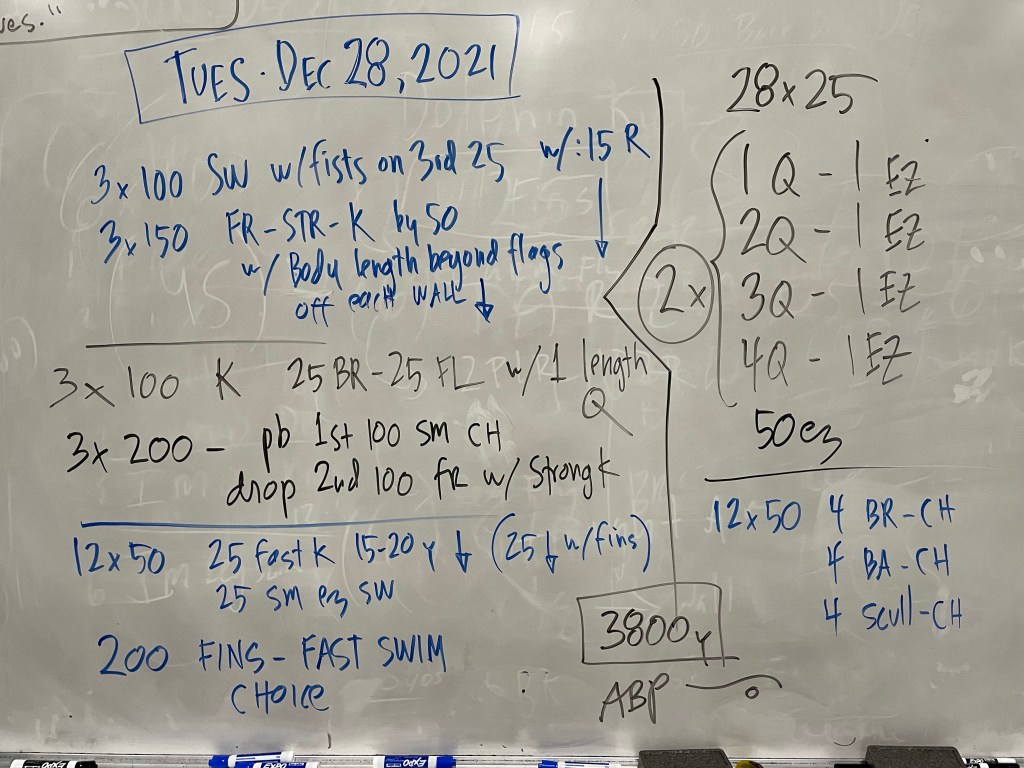 ues."
TUES. DEC 28, 2021
3x100 SW w/fists on 3rd 25 w/:15 R
3x150 FR-STR-K by 50
w/ Body length beyond flags
off each WALL ↓
3x100 K 25 BR-25 FL w/1 length
Q
3x200 - pb 1st 100 sm CH
drop 2nd 100 FR w/ Strong K
12x50 25 Fast K 15-20 y ↓ (25 ↓ w/fins)
25 sm ez sw
200 FINS - FAST SWIM
CHOICE
28x25
2x
1Q - 1 EZ
2Q - 1 EZ
3Q - 1 EZ
4Q - 1 EZ
50 ez
12x50 4 BR-CH
4 BA-CH
4 scull-CH
3800y
ABP
EXPO
EXPO